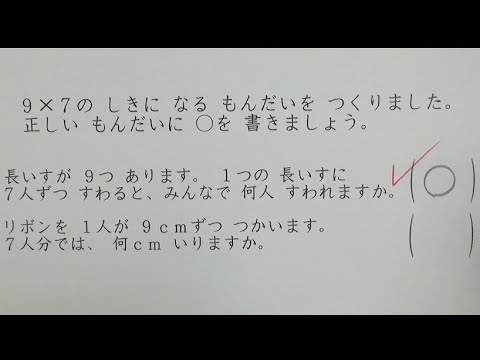 9×7の しきに なる もんだいを つくりました。
正しい もんだいに ○を 書きましょう。
長いすが 9つ あります。 1つの 長いすに
7人ずつ すわると、みんなで 何人 すわれますか。(○)
リボンを 1人が 9cmずつ つかいます。
7人分では、 何cm いりますか。( )